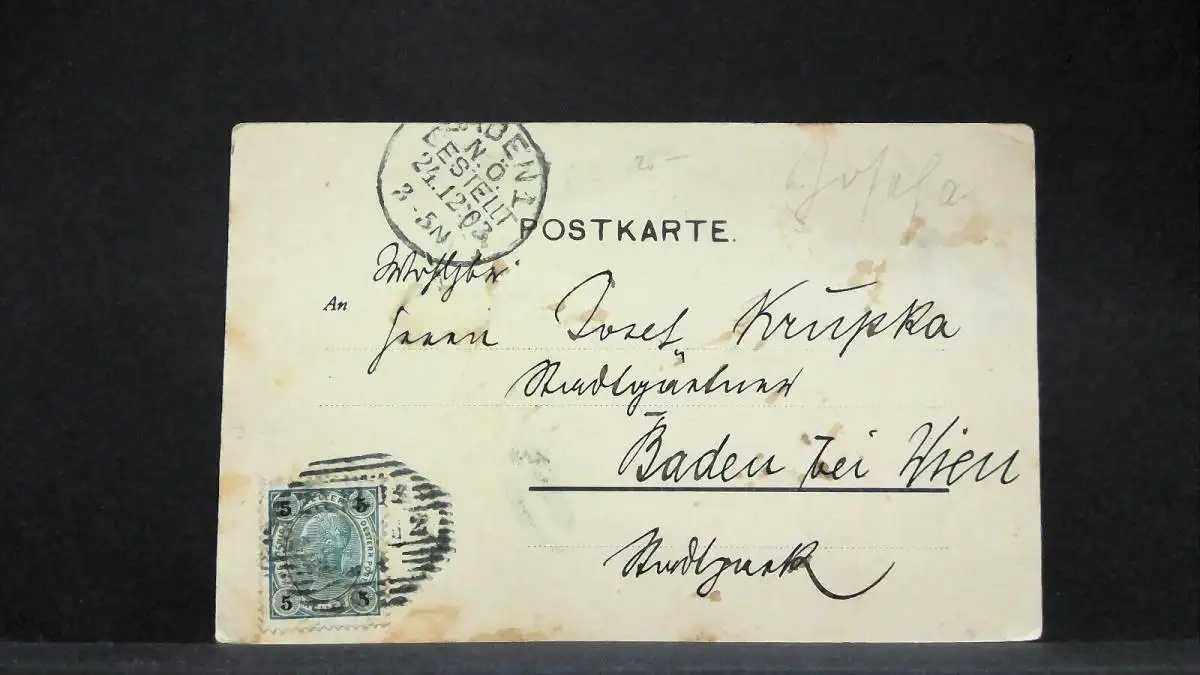 BADEN 1
N.Ö.
BESTELLT
24.12.03
3-5N
POSTKARTE.
Josefa
An
Wohlgeb.
Herrn Josef Krupka
Stadtgärtner
Baden bei Wien
Stadtpark
5 5
5 5